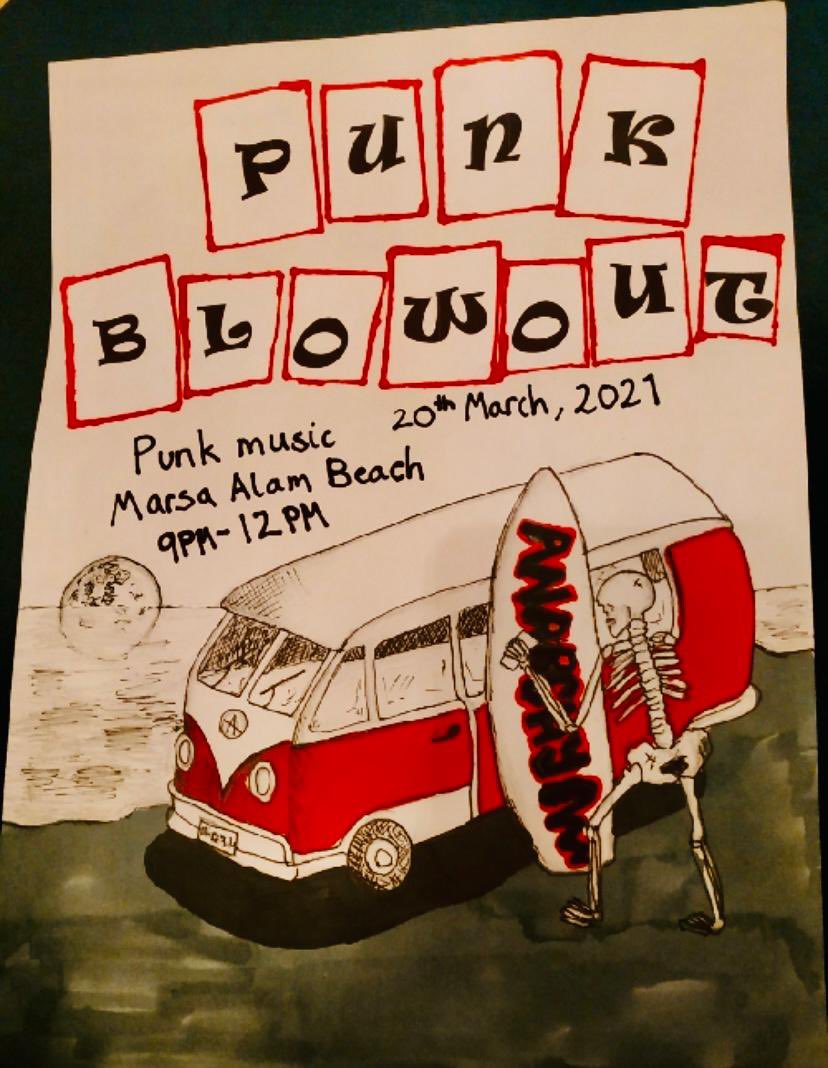 PUNK
BLOWOUT
20th March, 2021
Punk music
Marsa Alam Beach
9PM-12PM
A